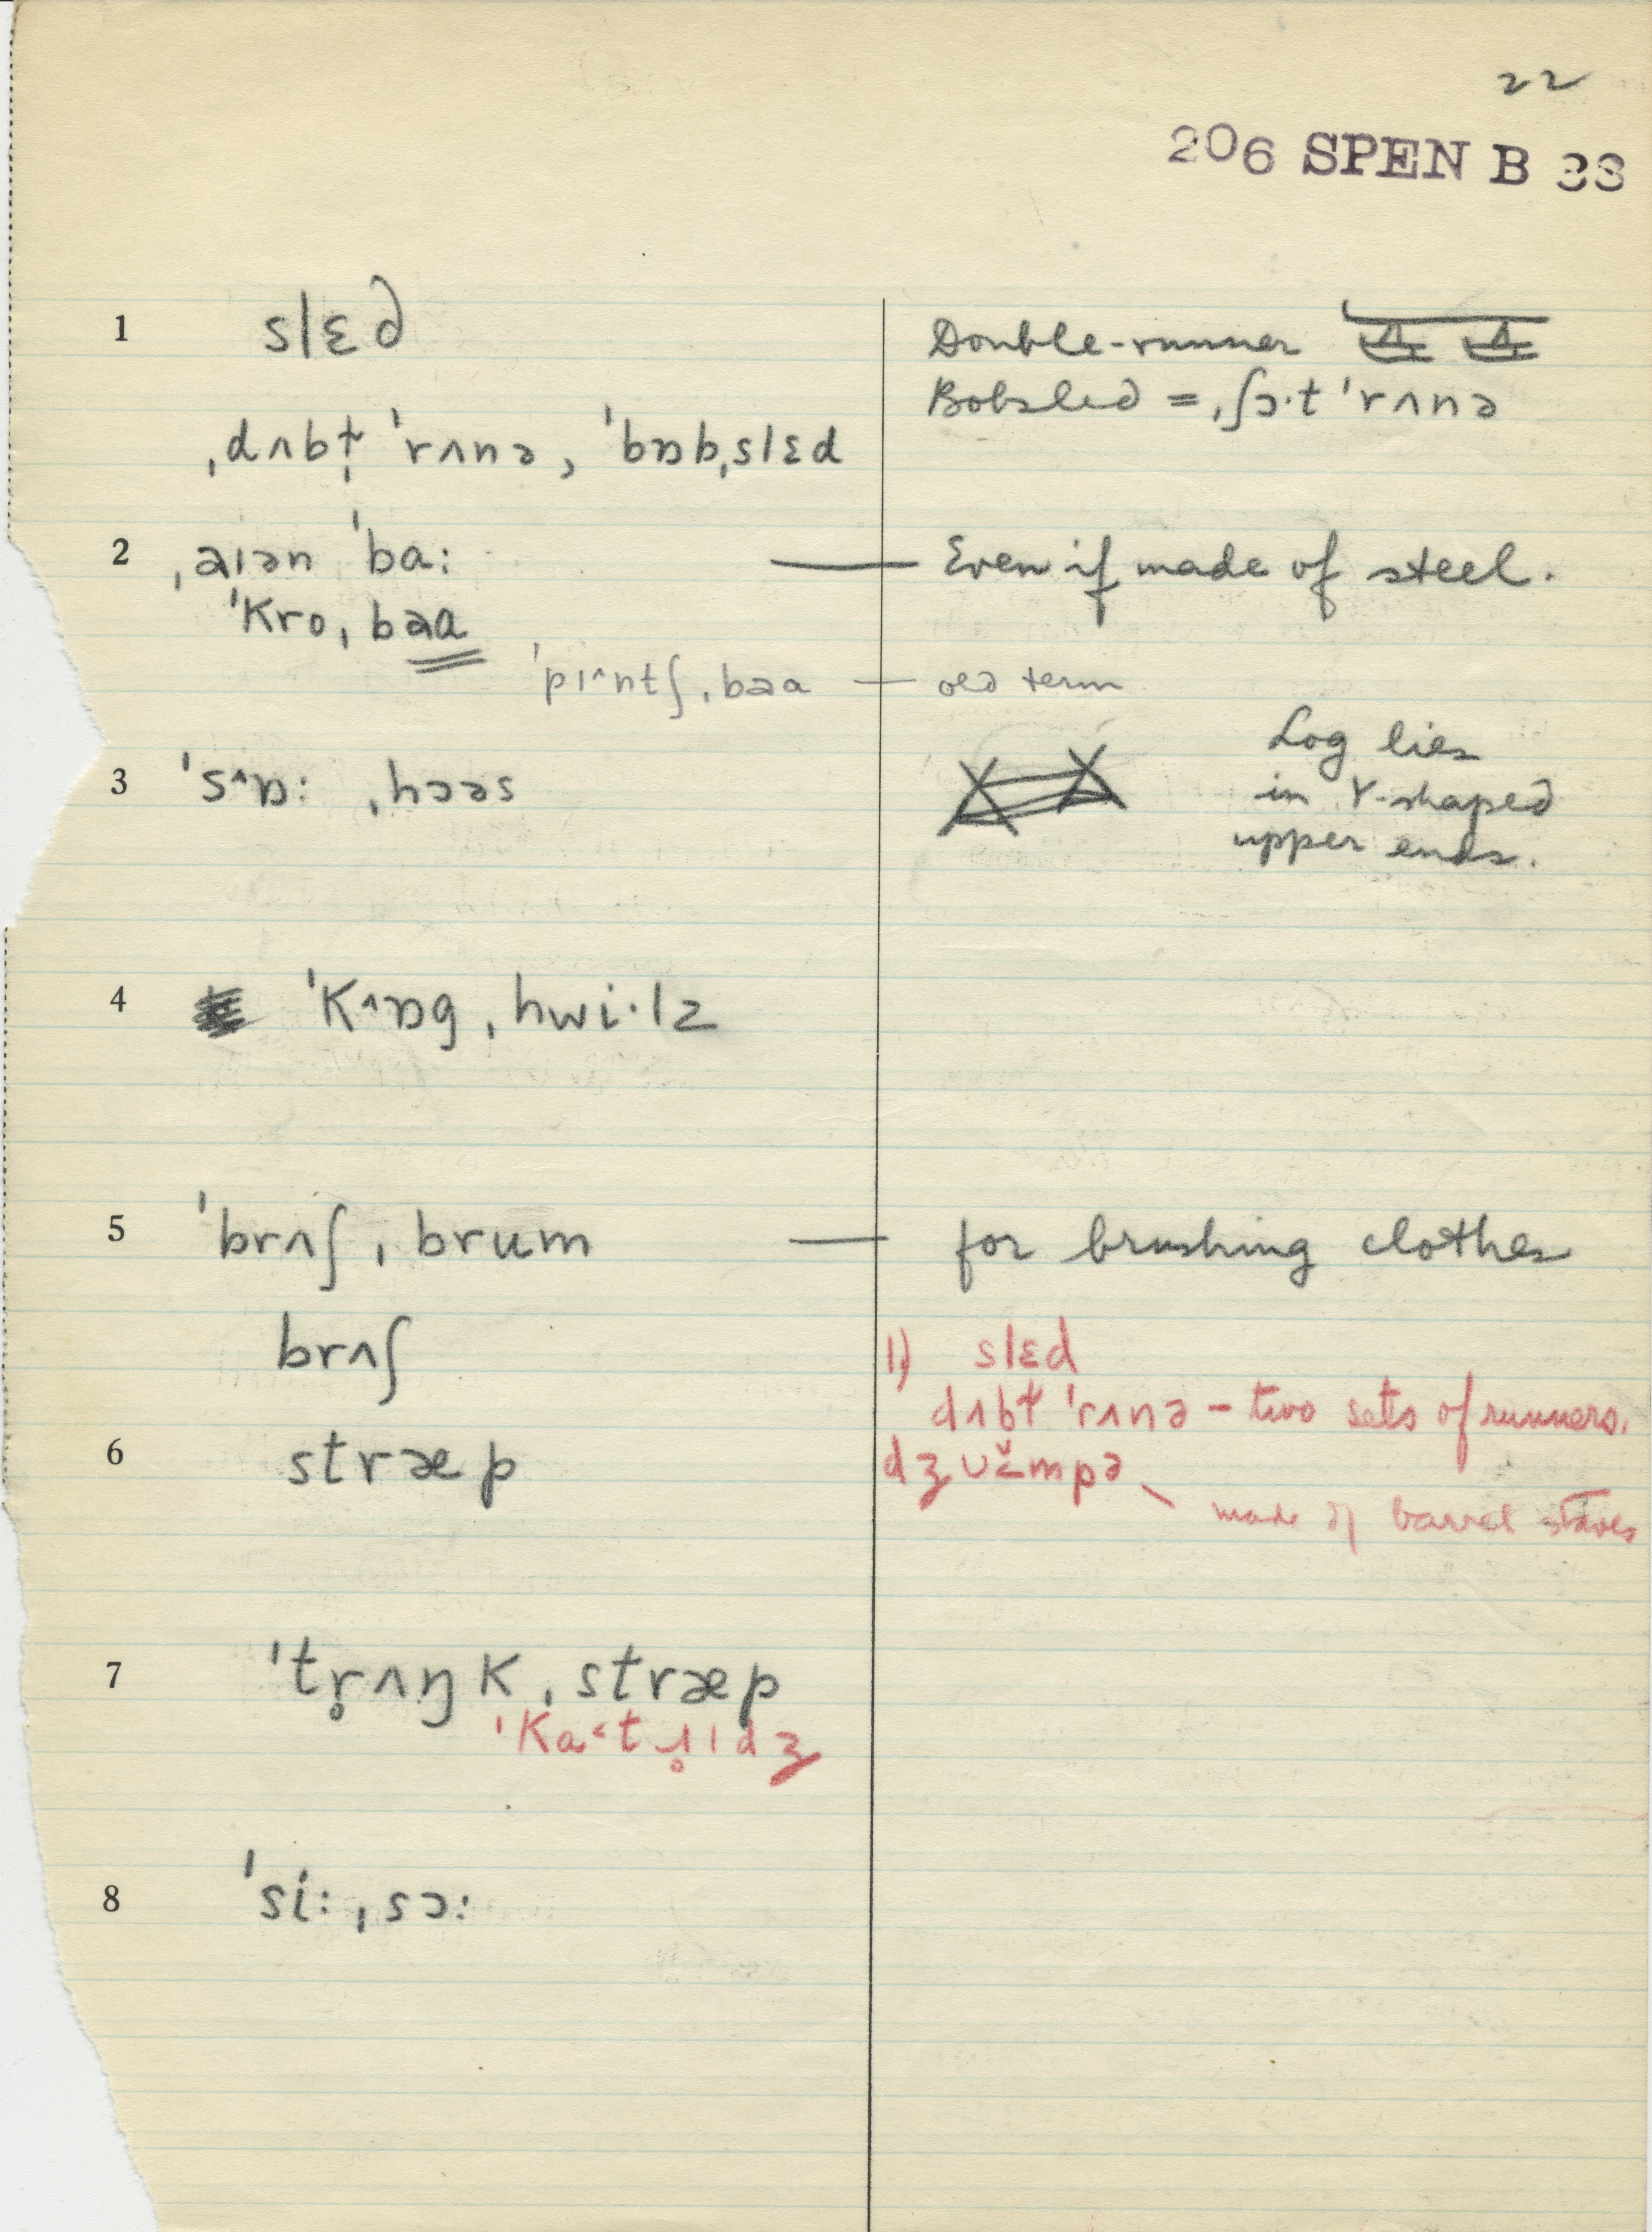 22
206 SPEN B 33
1 slɛd
Double-runner
Bobsled = ˌʃɔ·t ˈrʌnə
ˌdʌbɫ̩ ˈrʌnə, ˈbɒbˌslɛd
2 ˌaɪən ˈba: — Even if made of steel.
ˈkroˌbəɑ
ˈpɪ^ntʃˌbəɑ — old term
3 ˈs^ɒ: ˌhɔəs
Log lies
in Y-shaped
upper ends.
4 ˈk^ɒgˌhwi·lz
5 ˈbrʌʃˌbrum — for brushing clothes
brʌʃ
1) slɛd
dʌbɫ ˈrʌnə – two sets of runners.
6 stræp
made of barrel staves
7 ˈtr̥ʌŋkˌstræp
ˈka˂tɹ̥ɪdʒ
8 ˈsi:ˌsɔ: